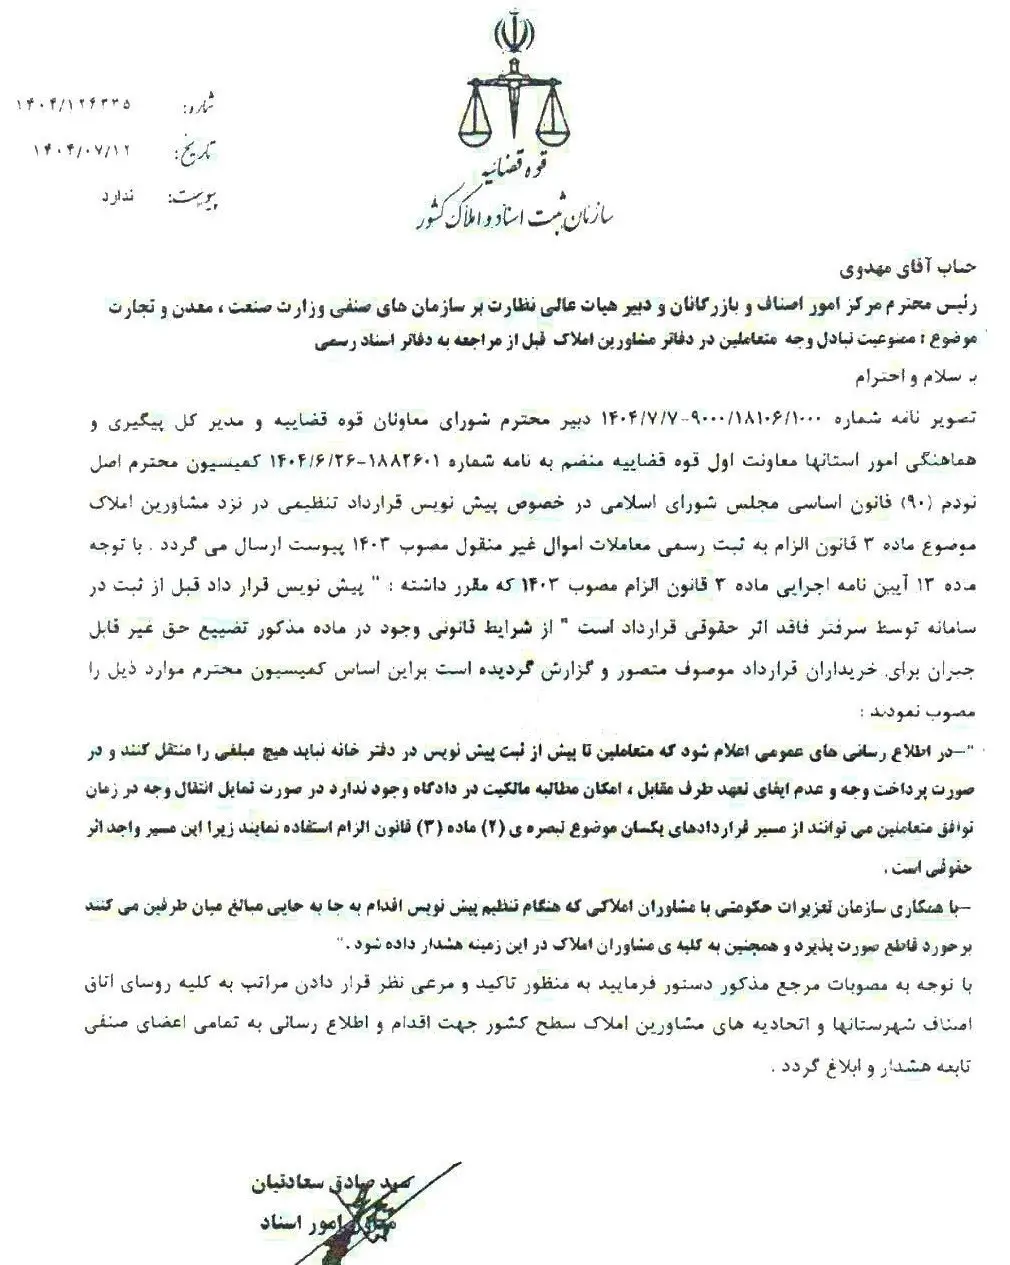 قوه قضائیه
سازمان ثبت اسناد و املاک کشور
شماره: ۱۴۰۴/۱۲۶۳۳۵
تاریخ: ۱۴۰۴/۰۷/۱۲
پیوست: ندارد
جناب آقای مهدوی
رئیس محترم مرکز امور اصناف و بازرگانان و دبیر هیات عالی نظارت بر سازمان های صنفی وزارت صنعت ، معدن و تجارت
موضوع : ممنوعیت تبادل وجه متعاملین در دفاتر مشاورین املاک قبل از مراجعه به دفاتر اسناد رسمی
با سلام و احترام
تصویر نامه شماره ۹۰۰۰/۱۸۱۰۶/۱۰۰۰-۱۴۰۴/۷/۷ دبیر محترم شورای معاونان قوه قضاییه و مدیر کل پیگیری و
هماهنگی امور استانها معاونت اول قوه قضاییه منضم به نامه شماره ۱۸۸۲۶۰۱-۱۴۰۴/۶/۲۶ کمیسیون محترم اصل
نودم (۹۰) قانون اساسی مجلس شورای اسلامی در خصوص پیش نویس قرارداد تنظیمی در نزد مشاورین املاک
موضوع ماده ۳ قانون الزام به ثبت رسمی معاملات اموال غیر منقول مصوب ۱۴۰۳ پیوست ارسال می گردد . با توجه
ماده ۱۳ آیین نامه اجرایی ماده ۳ قانون الزام مصوب ۱۴۰۳ که مقرر داشته : " پیش نویس قرار داد قبل از ثبت در
سامانه توسط سرفتر فاقد اثر حقوقی قرارداد است " از شرایط قانونی وجود در ماده مذکور تضییع حق غیر قابل
جبران برای خریداران قرارداد موصوف متصور و گزارش گردیده است براین اساس کمیسیون محترم موارد ذیل را
مصوب نمودند :
"-در اطلاع رسانی های عمومی اعلام شود که متعاملین تا پیش از ثبت پیش نویس در دفتر خانه نباید هیچ مبلغی را منتقل کنند و در
صورت پرداخت وجه و عدم ایفای تعهد طرف مقابل ، امکان مطالبه مالکیت در دادگاه وجود ندارد در صورت تمایل انتقال وجه در زمان
توافق متعاملین می توانند از مسیر قراردادهای یکسان موضوع تبصره ی (۲) ماده (۳) قانون الزام استفاده نمایند زیرا این مسیر واجد اثر
حقوقی است .
-با همکاری سازمان تعزیرات حکومتی با مشاوران املاکی که هنگام تنظیم پیش نویس اقدام به جا به جایی مبالغ میان طرفین می کنند
برخورد قاطع صورت پذیرد و همچنین به کلیه ی مشاوران املاک در این زمینه هشدار داده شود ."
با توجه به مصوبات مرجع مذکور دستور فرمایید به منظور تاکید و مرعی نظر قرار دادن مراتب به کلیه روسای اتاق
اصناف شهرستانها و اتحادیه های مشاورین املاک سطح کشور جهت اقدام و اطلاع رسانی به تمامی اعضای صنفی
تابعه هشدار و ابلاغ گردد .
سید صادق سعادتیان
معاون امور اسناد